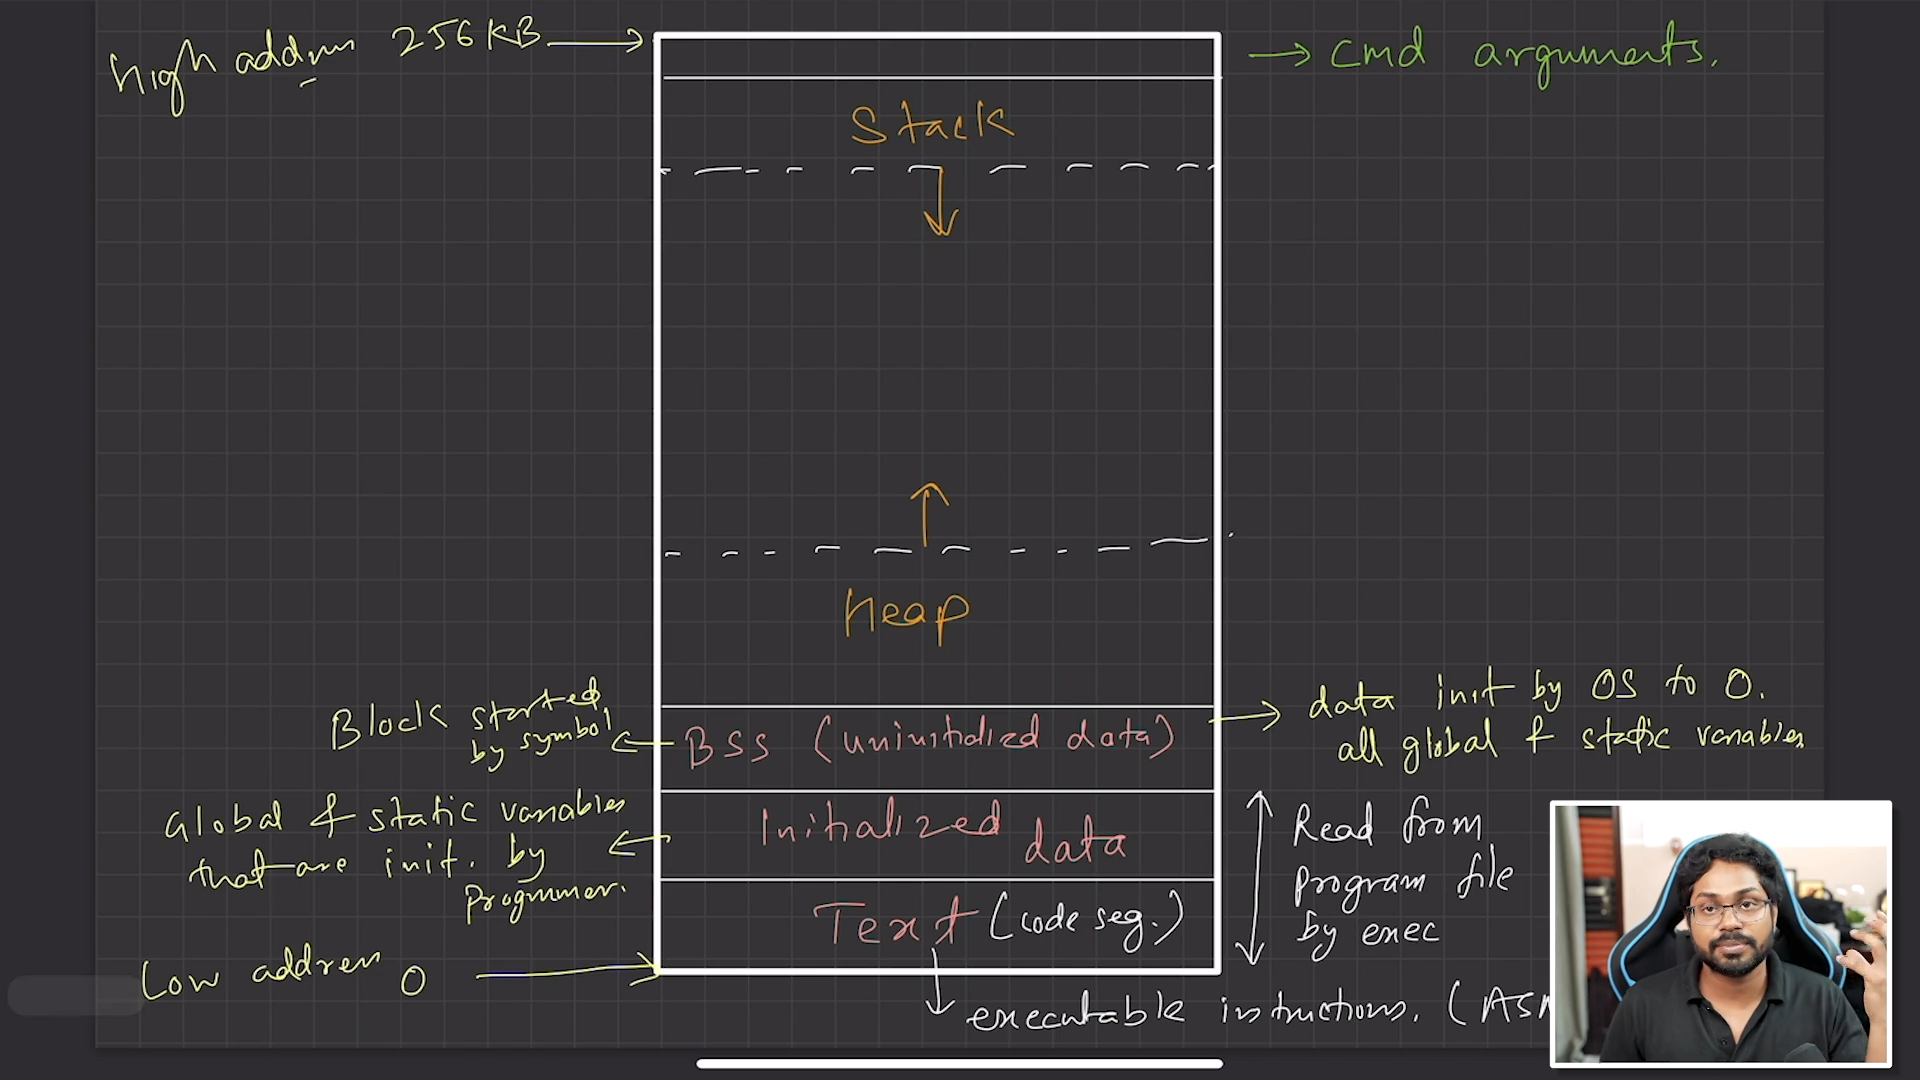 High address 256KB
cmd arguments.
Stack
Heap
Block started
by symbol
BSS (uninitialized data)
data init by OS to 0.
all global & static variables
Global & static variables
that are init. by
Programmer.
Initialized data
Read from
program file
by exec
Text (code seg.)
Low address 0
executable instructions. (ASM